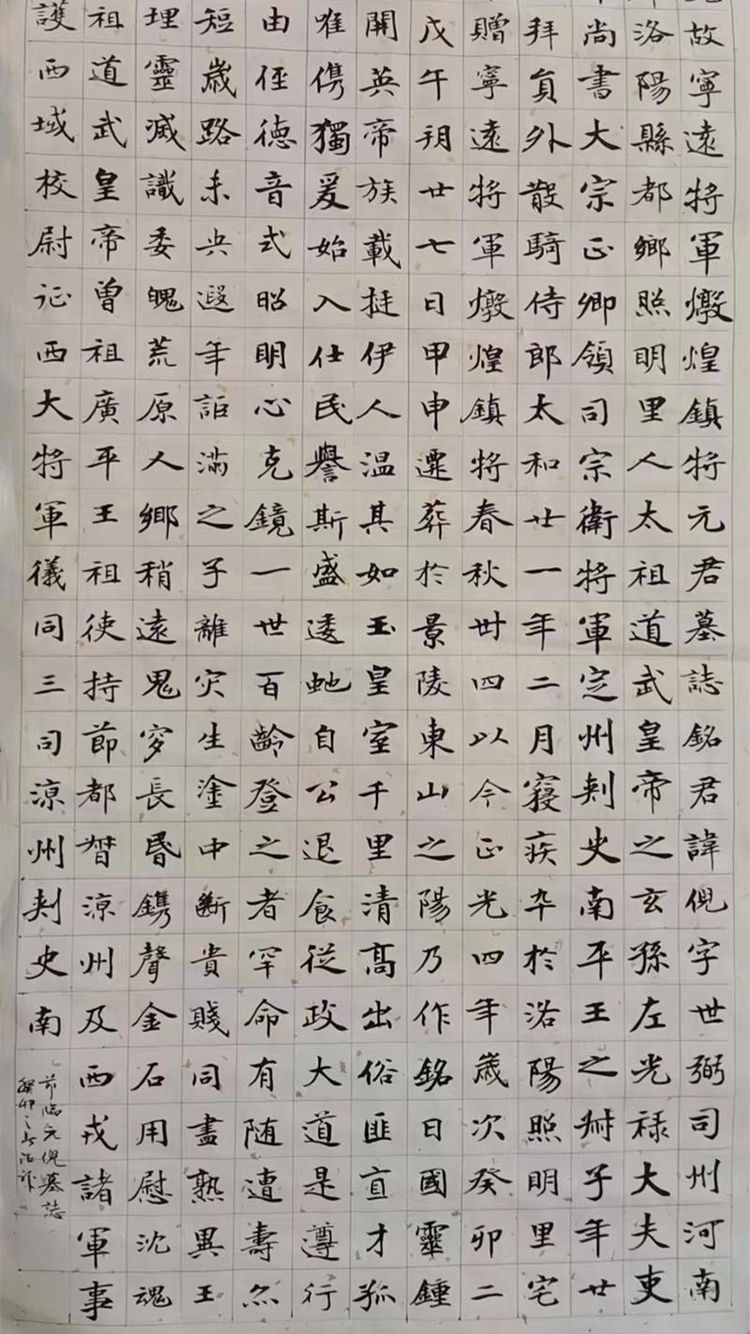 故寧遠將軍燉煌鎮將元君墓誌銘君諱倪字世弼司州河南
洛陽縣都鄉照明里人太祖道武皇帝之玄孫左光祿大夫吏
尚書大宗正卿領司宗衛將軍定州刺史南平王之子年廿
拜員外散騎侍郎太和廿一年二月寢疾卒於洛陽照明里宅
贈寧遠將軍燉煌鎮將春秋卌四以今正光四年歲次癸卯二
戊午朔廿七日甲申遷葬於景陵東山之陽乃作銘曰國靈鍾
開英帝族載挺伊人溫其如玉皇室千里清高出俗匪直才孤
唯儁獨爰始入仕民譽斯盛逶虵自公退食從政大道是遵行
由俓德音式昭明心克鏡一世百齡登之者罕命有隨遭壽尒
短歲路未央遐年詎滿之子離灾生塗中斷貴賤同盡熟異王
埋靈滅識委魄荒原人鄉稍遠鬼穸長昏鐫聲金石用慰沈魂
祖道武皇帝曾祖廣平王祖使持節都督涼州及西戎諸軍事
護西域校尉征西大將軍儀同三司涼州刺史南
節臨元倪墓誌
癸卯之